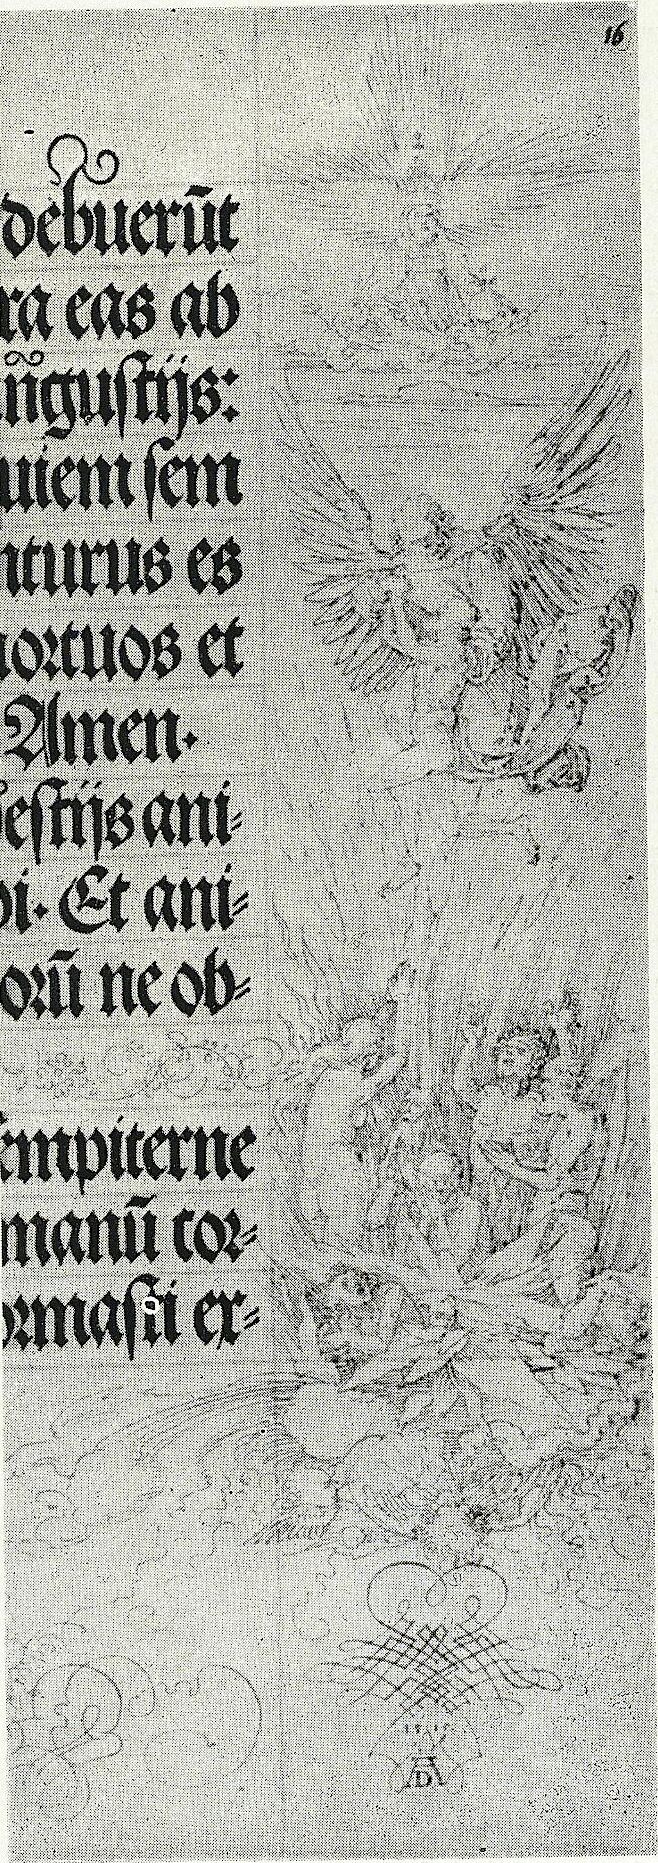 16
debuerūt
ra eas ab
n̄gustijs:
uiem sem
nturus es
ortuos et
Amen.
estijs ani-
i. Et ani-
orū ne ob-
empiterne
manū tor-
rmasti ex-
AD